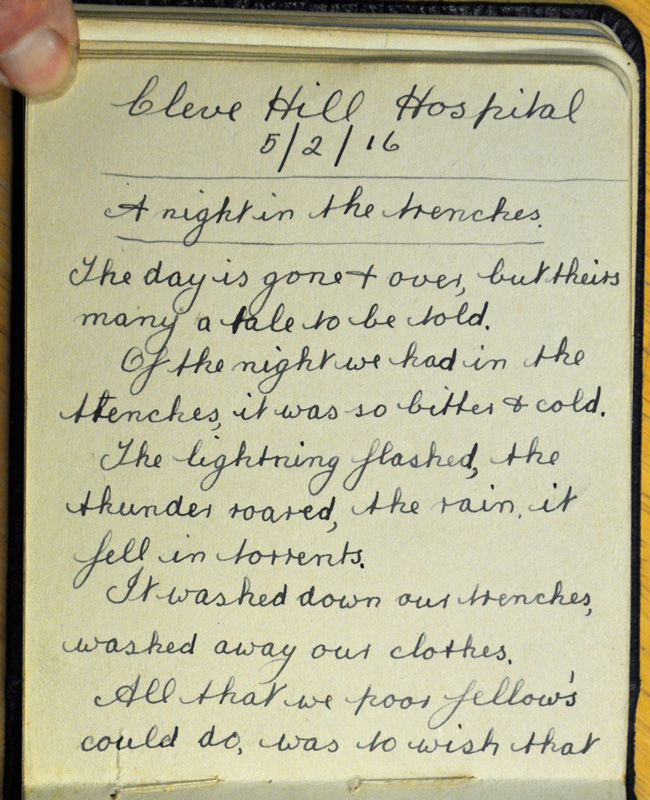 Cleve Hill Hospital
5/2/16
A night in the trenches.
The day is gone & over, but theirs
many a tale to be told.
Of the night we had in the
trenches, it was so bitter & cold.
The lightning flashed, the
thunder roared, the rain, it
fell in torrents.
It washed down our trenches,
washed away our clothes.
All that we poor fellow's
could do, was to wish that